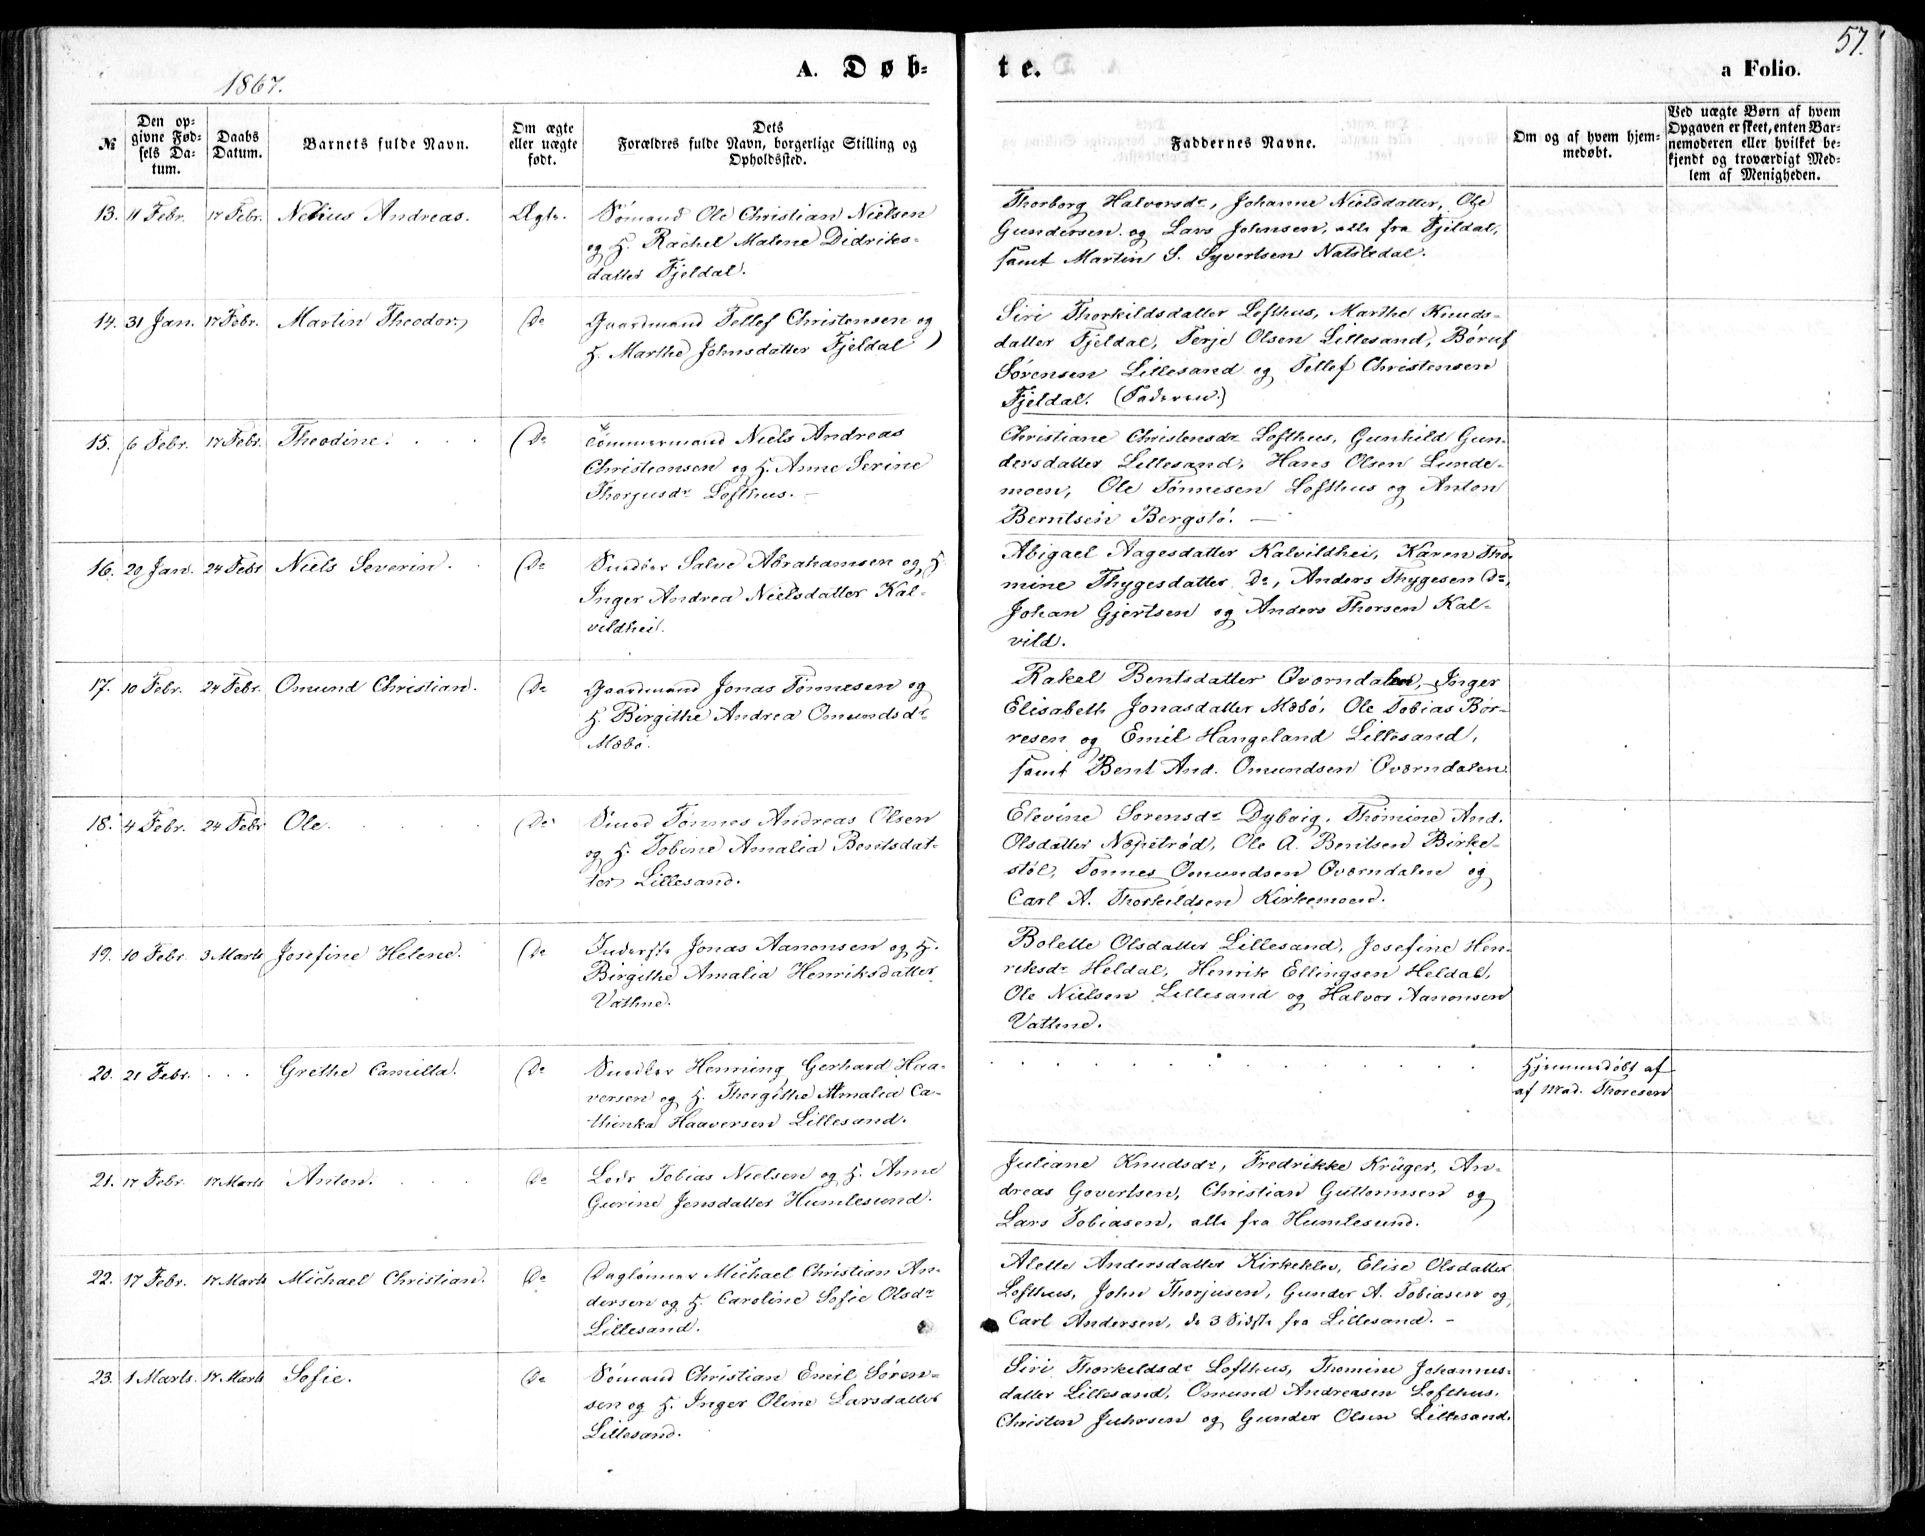 57.
1867.
A. Døb-
te.
a Folio.
№
Den op-
givne Fød-
sels Da-
tum.
Daabs
Datum.
Barnets fulde Navn.
Om ægte
eller uægte
født.
Dets
Forældres fulde Navn, borgerlige Stilling og
Opholdssted.
Faddernes Navne.
Om og af hvem hjem-
medøbt.
Ved uægte Børn af hvem
Opgaven er skeet, enten Bar-
nemoderen eller hvilket be-
kjendt og troværdigt Med-
lem af Menigheden.
13. 11 Febr. 17 Febr. Nelius Andreas. Ægte.
Sømand Ole Christian Nielsen
og H. Rachel Malene Didriks-
datter Fjeldal.
Thorborg Halvorsdr, Johanne Nielsdatter, Ole
Gundersen og Lars Johnsen, alle fra Fjeldal,
samt Martin S. Syvertsen
14. 31 Jan. 17 Febr. Martin Theodor. Do
Gaardmand Tellef Christensen og
H. Marthe Johnsdatter Fjeldal
Siri Thorkildsdatter Lofthus, Marthe Knuds-
datter Fjeldal, Terje Olsen Lillesand,
Sørensen Lillesand og Tellef Christensen
Fjeldal. (Faderen.)
15. 6 Febr. 17 Febr. Theodine. Do
Tømmermand Niels Andreas
Christiansen og H. Anne Serine
Thorjusdr Lofthus. –
Christiane Christensdr Lofthus, Gunhild Gun-
dersdatter Lillesand, Hans Olsen Lunde-
moen, Ole Tønnesen Lofthus og Anton
Berntsen Bergstø. —
16. 20 Jan. 24 Febr Niels Severin. Do
Snedker Salve Abrahamsen og H.
Inger Andrea Nielsdatter Kal-
vildhei.
Abigael Aagesdatter Kalvildhei, Karen Tho-
mine Thygesdatter Do, Anders Thygesen Do,
Johan Gjertsen og Anders Thorsen Kal-
vild.
17. 10 Febr. 24 Febr. Omund Christian. Do
Gaardmand Jonas Tønnesen og
H. Birgithe Andrea Omundsdr
Mæbø.
Rakel Bentsdatter Qværndalen, Inger
Elisabeth Jonasdatter Mæbø, Ole Tobias Bør-
resen og Emil Hangeland Lillesand,
samt Bent And. Omundsen Qværndalen
18. 4 Febr. 24 Febr Ole. Do
Smed Tønnes Andreas Olsen
og H. Tobine Amalia Bentsdat-
ter Lillesand.
Elevine Sørensdr Dybvig, Thomine And.
Olsdatter Næpetrød, Ole A. Bentsen Birke-
støl, Tønnes Omundsen Qværndalen og
Carl A. Thorkildsen Kirkemoen.
19. 10 Febr. 3 Marts Josefine Helene. Do
Inderste Jonas Aanonsen og H.
Birgithe Amalia Henriksdatter
Vathne.
Bolette Olsdatter Lillesand, Josefine Hen-
riksdr Heldal, Henrik Ellingsen Heldal,
Ole Nielsen Lillesand og Halvor Aanonsen
Vathne.
20. 21 Febr. . . . Grethe Camilla. Do
Snedker Henning Gerhard Haa-
versen og H. Thorgithe Amalia Ca-
thinka Haaversen Lillesand.
Hjemmedøbt af
af Mad. Thoresen
21. 17 Febr. 17 Marts Anton. Do
Lods Tobias Nielsen og H. Anne
Gurine Jensdatter Humlesund.
Juliane Knudsdr, Fredrikke Krüger, An-
dreas Govertsen, Christian Guttormsen og
Lars Tobiasen, alle fra Humlesund.
22. 17 Febr. 17 Marts Michael Christian. Do
Daglønner Michael Christian An-
dersen og H. Caroline Sofie Olsdr
Lillesand.
Alette Andersdatter Kirkeklev, Elise Olsdatter
Lofthus, John Thorjusen, Gunder A. Tobiasen og
Carl Andersen, de 3 Sidste fra Lillesand. –
23. 1 Marts. 17 Marts Sofie. Do
Sømand Christian Emil Søren-
sen og H. Inger Oline Larsdatter
Lillesand.
Siri Thorkildsdr Lofthus, Thomine Johannes-
datter Lillesand, Omund Andreasen Lofthus,
Christen Juhlsen og Gunder Olsen Lillesand.